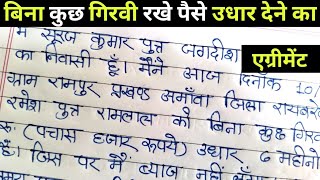 बिना कुछ गिरवी रखे पैसे उधार देने का
एग्रीमेंट
मैं सूरज कुमार पुत्र जगदीश
का निवासी हूँ। मैंने आज दिनाँक 10/
ग्राम रामपुर प्रखण्ड अमाँवा जिला रायबरे
रमेश पुत्र रामलाल को बिना कुछ गिर
रू (पचास हजार रूपये) उधार 6 महीनो
है। जिस पर मैं ब्याज नहीं